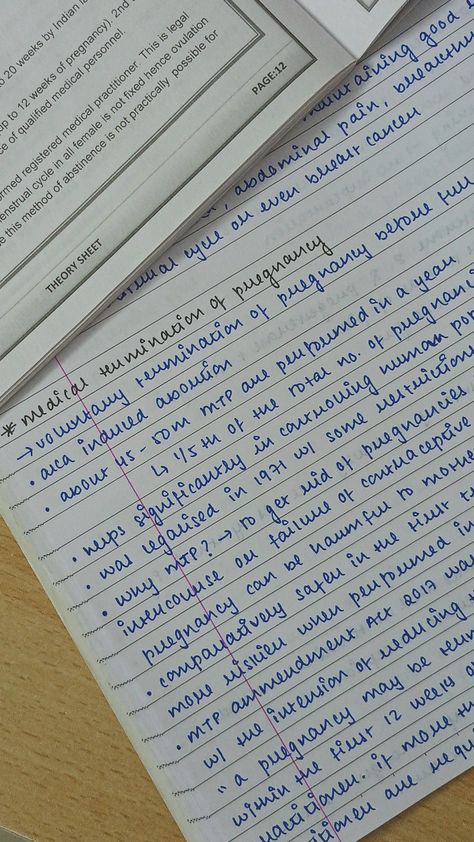 to 20 weeks by Indian
up to 12 weeks of pregnancy), 2nd
of qualified medical personnel.
ormed registered medical practitioner. This is legal
enstrual cycle in all female is not fixed hence ovulation
this method of abstinence is not practically possible for
PAGE:12
THEORY SHEET
maintaining good
, abdominal pain,
cycle or even breast cancer
* medical termination of pregnancy
→ voluntary termination of pregnancy before full
• aka induced abortion
• about 45-50m MTP are performed in a year
↳ 1/5th of the total no. of
• helps significantly in controlling human
• was legalised in 1971 w/ some restrictions
• why MTP? → to get rid of pregnancies
intercourse or failure of contraceptive
pregnancy can be harmful to
• comparatively safer in the first
more riskier when performed
• MTP ammendment Act 2017
w/ the intension of reducing
" a pregnancy may be
within the first 12 weeks
. if more
are